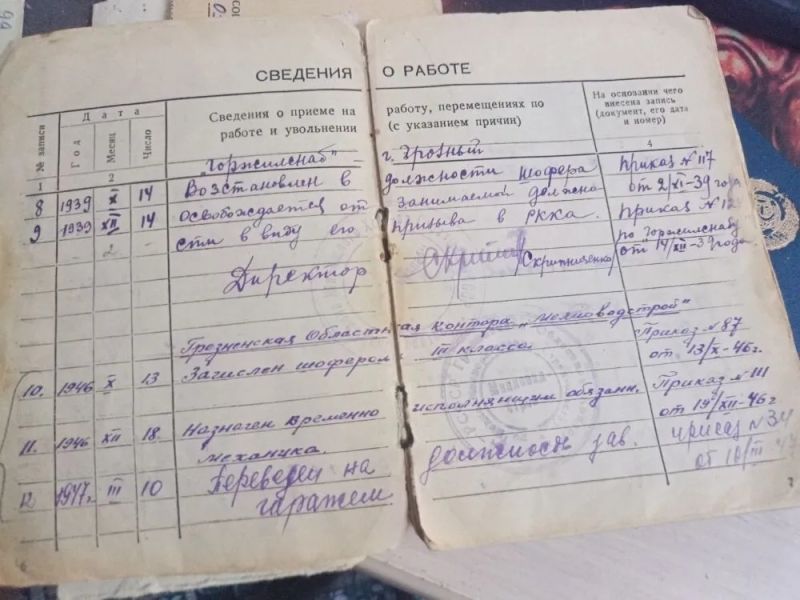 СВЕДЕНИЯ О РАБОТЕ
№ записи
Дата
Год
Месяц
Число
Сведения о приеме на работу, перемещениях по
работе и увольнении (с указанием причин)
На основании чего
внесена запись
(документ, его дата
и номер)
1 2 3 4
"Горжилснаб" г. Грозный
8 1939 XI 14 Возстановлен в должности шофера Приказ №117
от 2/XI-39 года
9 1939 XII 14 Освобождается от занимаемой должно Приказ №12
сти в виду его призыва в РККА. по "Горжилснабу"
от 14/XII-39 года
Директор /Скрипниченко/
Грозненская Областная контора "Мехповодстрой"
10. 1946 X 13 Зачислен шофером III класса Приказ №87
от 13/X-46г.
11. 1946 XII 18. Назначен временно исполняющим обязанн. Приказ №111
механика. от 19/XII-46г
12 1947г. III 10 Переведен на должность зав. приказ №34
гаражем от 10/III
6